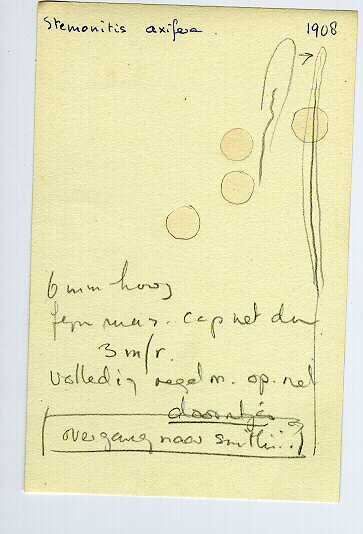 Stemonitis axifera 1908
6 mm hoog
fijn maz. cap net dun
3 m/r.
volledig regelm. op. net
doorntjes
overgang naar smithii?